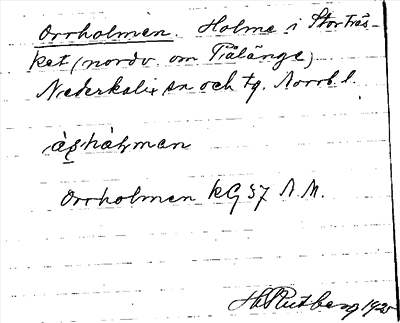 Orrholmen. Holme i Storträs-
ket (nordv. om Tiälänge)
Nederkalix sn och tg. Norrb. l.
Orrholmen KG 57 N. N.
H. Rutberg 1920